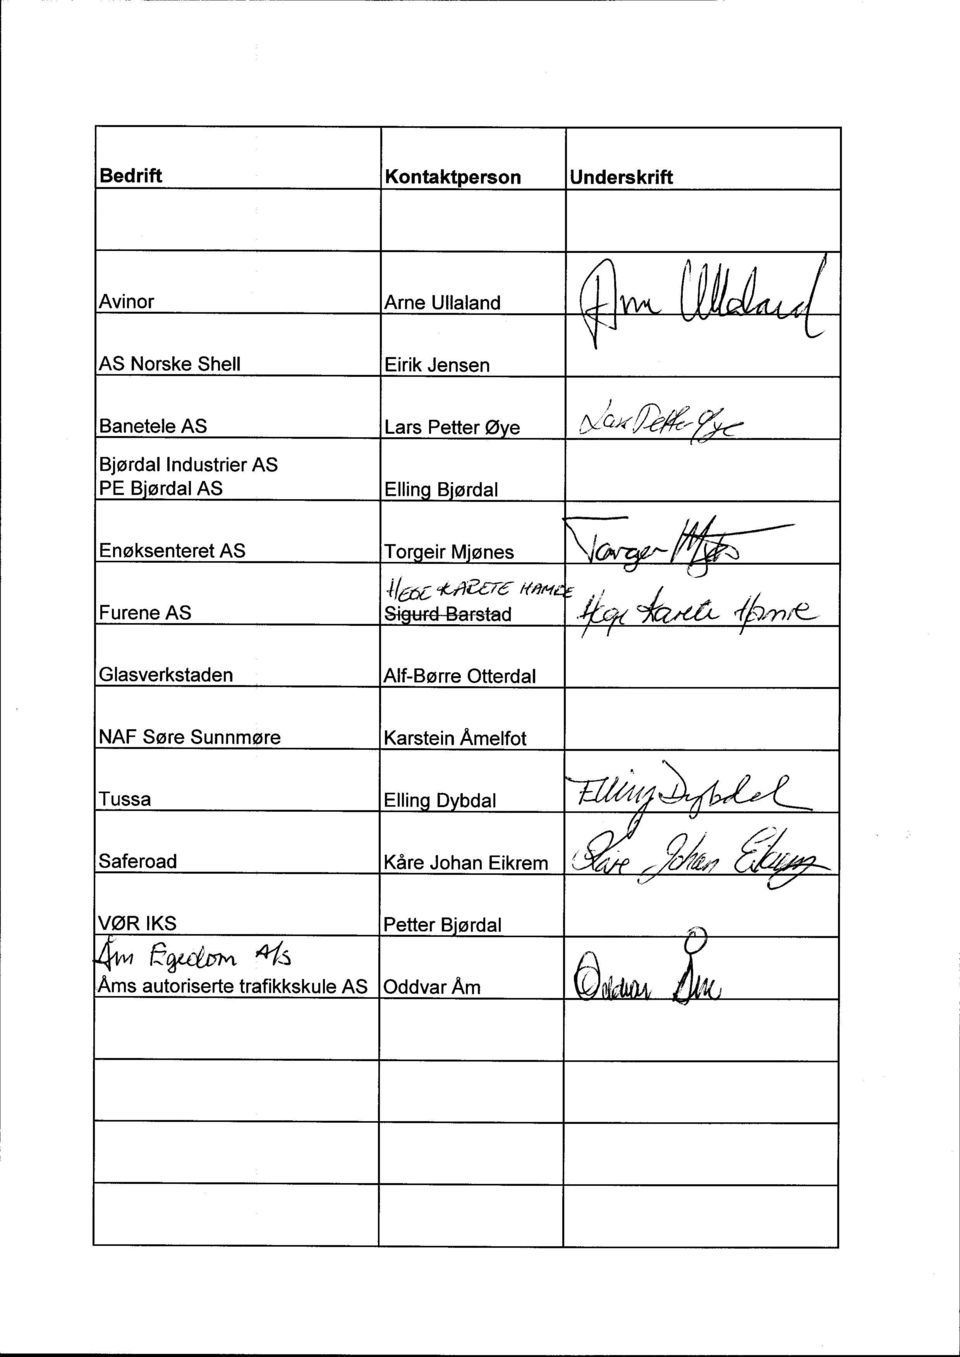 Bedrift Kontaktperson Underskrift
Avinor Arne Ullaland Arne Ullaland
AS Norske Shell Eirik Jensen
Banetele AS Lars Petter Øye Lars Petter Øye
Bjørdal Industrier AS
PE Bjørdal AS Elling Bjørdal
Enøksenteret AS Torgeir Mjønes Torgeir Mjønes
HEGE KARETE HAMRE
Furene AS Sigurd Barstad Hege Karete Hamre
Glasverkstaden Alf-Børre Otterdal
NAF Søre Sunnmøre Karstein Åmelfot
Tussa Elling Dybdal Elling Dybdal
Saferoad Kåre Johan Eikrem Kåre Johan Eikrem
VØR IKS Petter Bjørdal
Åm Egedom A/s
Åms autoriserte trafikkskule AS Oddvar Åm Oddvar Åm